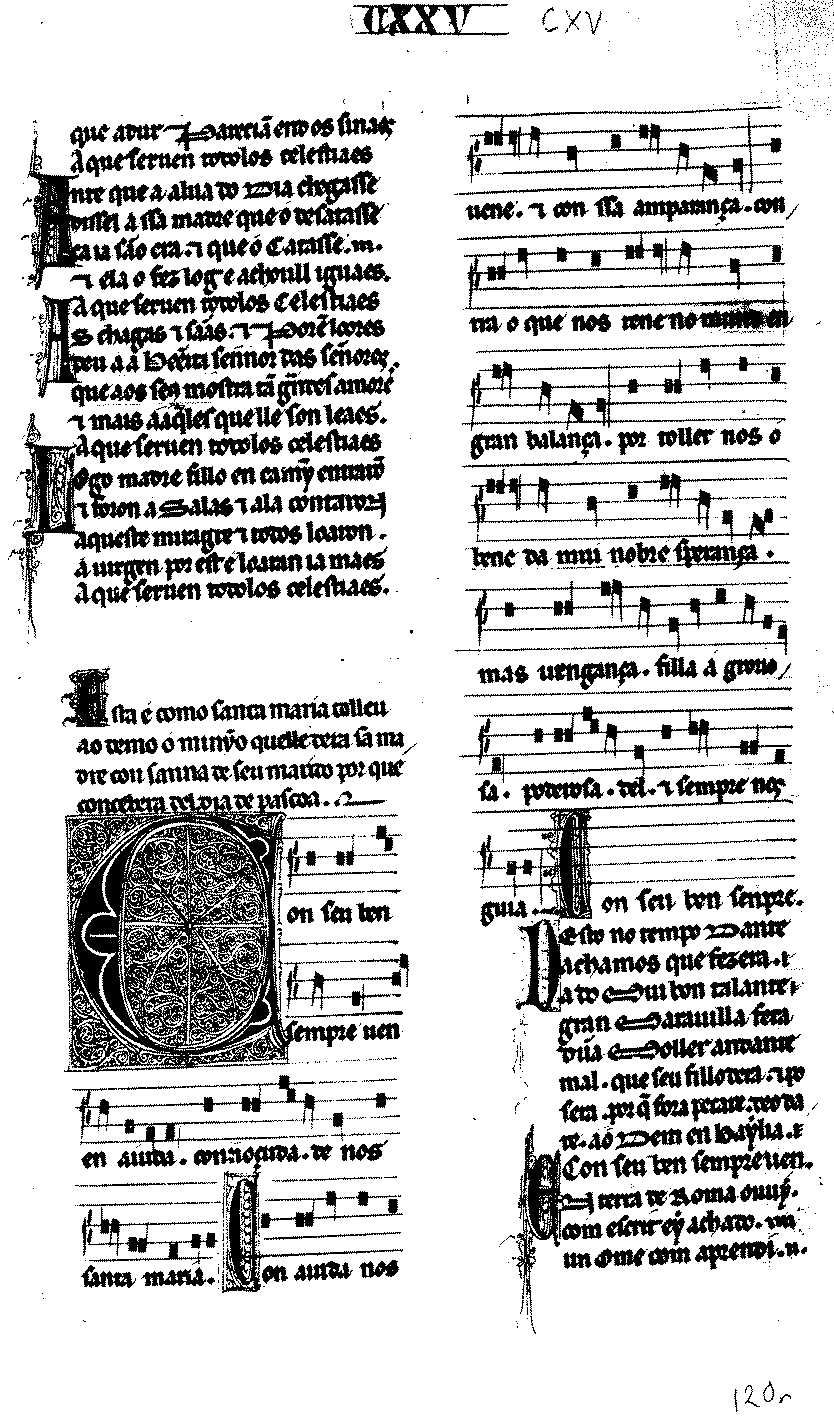 CXXV CXV
que adur Pareciã end os sinaes
A que seruen todolos celestiaes
Ante que a alua do Dia chegasse
dissel a ssa madre que o desatasse
ca ia são era. ⁊ que o Catasse. m.
⁊ ela o fez log e achoull iguaes.
A que seruen todolos Celestiaes
As chagas ⁊ sãas. ⁊ Porẽ loores
deu a a Beeita sennor das sẽnores.
que aos seꝯ mostra tã grãdes amores
⁊ mais aaq̃les que lle son leaes.
A que seruen todolos celestiaes
Logo madre fillo en camỹ entrarõ
⁊ foron a Salas ⁊ ala contaron
aqueste miragre ⁊ todos loaron.
a uirgen por est e loaran ia maes
A que seruen todolos celestiaes.
Esta é como santa maria tolleu
ao demo o minỹo quelle dera sa ma
dre con sanna de seu marido por que
concebera del dia de pascoa.
Con seu ben
sempre uen
en aiuda. connoçuda. de nos
santa maria. Con aiuda nos
uene. ⁊ con ssa amparança. con
tra o que nos tene no mundo en
gran balança. por toller nos o
bene da mui nobre sperança.
mas uengança. filla a grorio
sa. poderosa. del. ⁊ sempre nos
guia. Con seu ben senpre.
Desto no tempo Dante
achamos que fezera.
a do Mui bon talante
gran Marauilla fera
Dũa Moller andante
mal. que seu fillo dera. ⁊ po
sera. por q̃ fora perante. deo da
te. ao Dem en baỹlia. ⁊
Con seu ben sempre uen.
En terra de Roma ouuỹ.
com escrit eỹ achado. un
un Ome com aprendi. n.
120r